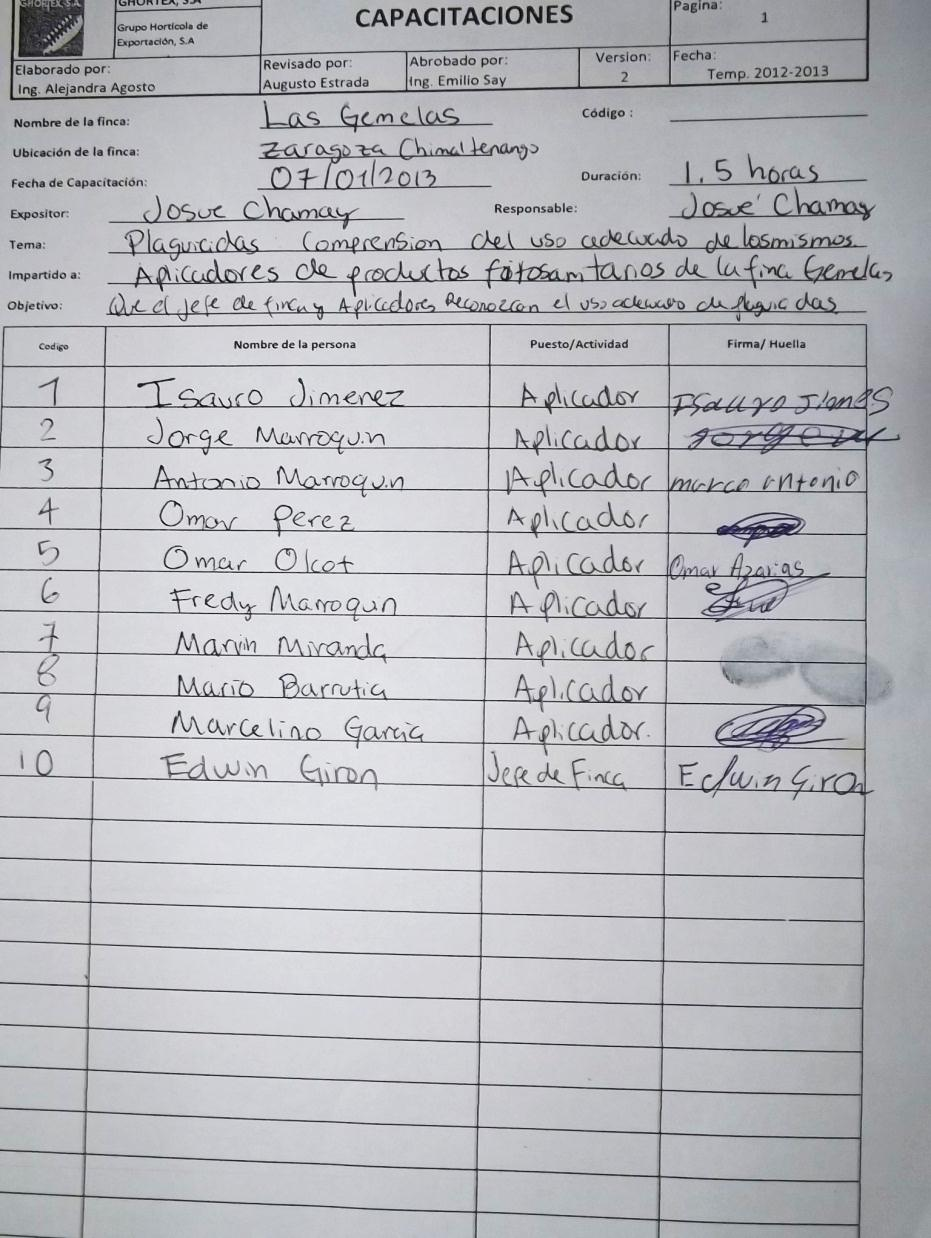 GHORTEX, S.A
GHORTEX, S.A
Grupo Hortícola de
Exportación, S.A
CAPACITACIONES
Pagina:
1
Elaborado por:
Ing. Alejandra Agosto
Revisado por:
Augusto Estrada
Abrobado por:
Ing. Emilio Say
Version:
2
Fecha:
Temp. 2012-2013
Nombre de la finca: Las Gemelas Código :
Ubicación de la finca: Zaragoza Chimaltenango
Fecha de Capacitación: 07/01/2013 Duración: 1.5 horas
Expositor: Josue Chamay Responsable: Josué Chamay
Tema: Plaguicidas Comprension del uso adecuado de losmismos
Impartido a: Aplicadores de productos fitosanitarios de la fina Gemelas
Objetivo: Que el jefe de finca y Aplicadores Reconozcan el uso adecuado de plaguicidas
Codigo Nombre de la persona Puesto/Actividad Firma/ Huella
1 Isauro Jimenez Aplicador Isauro
2 Jorge Marroquin Aplicador
3 Antonio Marroquin Aplicador marco antonio
4 Omar Perez Aplicador
5 Omar Olcot Aplicador Omar Azarias
6 Fredy Marroquin Aplicador
7 Marvin Miranda Aplicador
8 Mario Barrutia Aplicador
9 Marcelino Garcia Aplicador.
10 Edwin Giron Jefe de Finca Edwin Giron